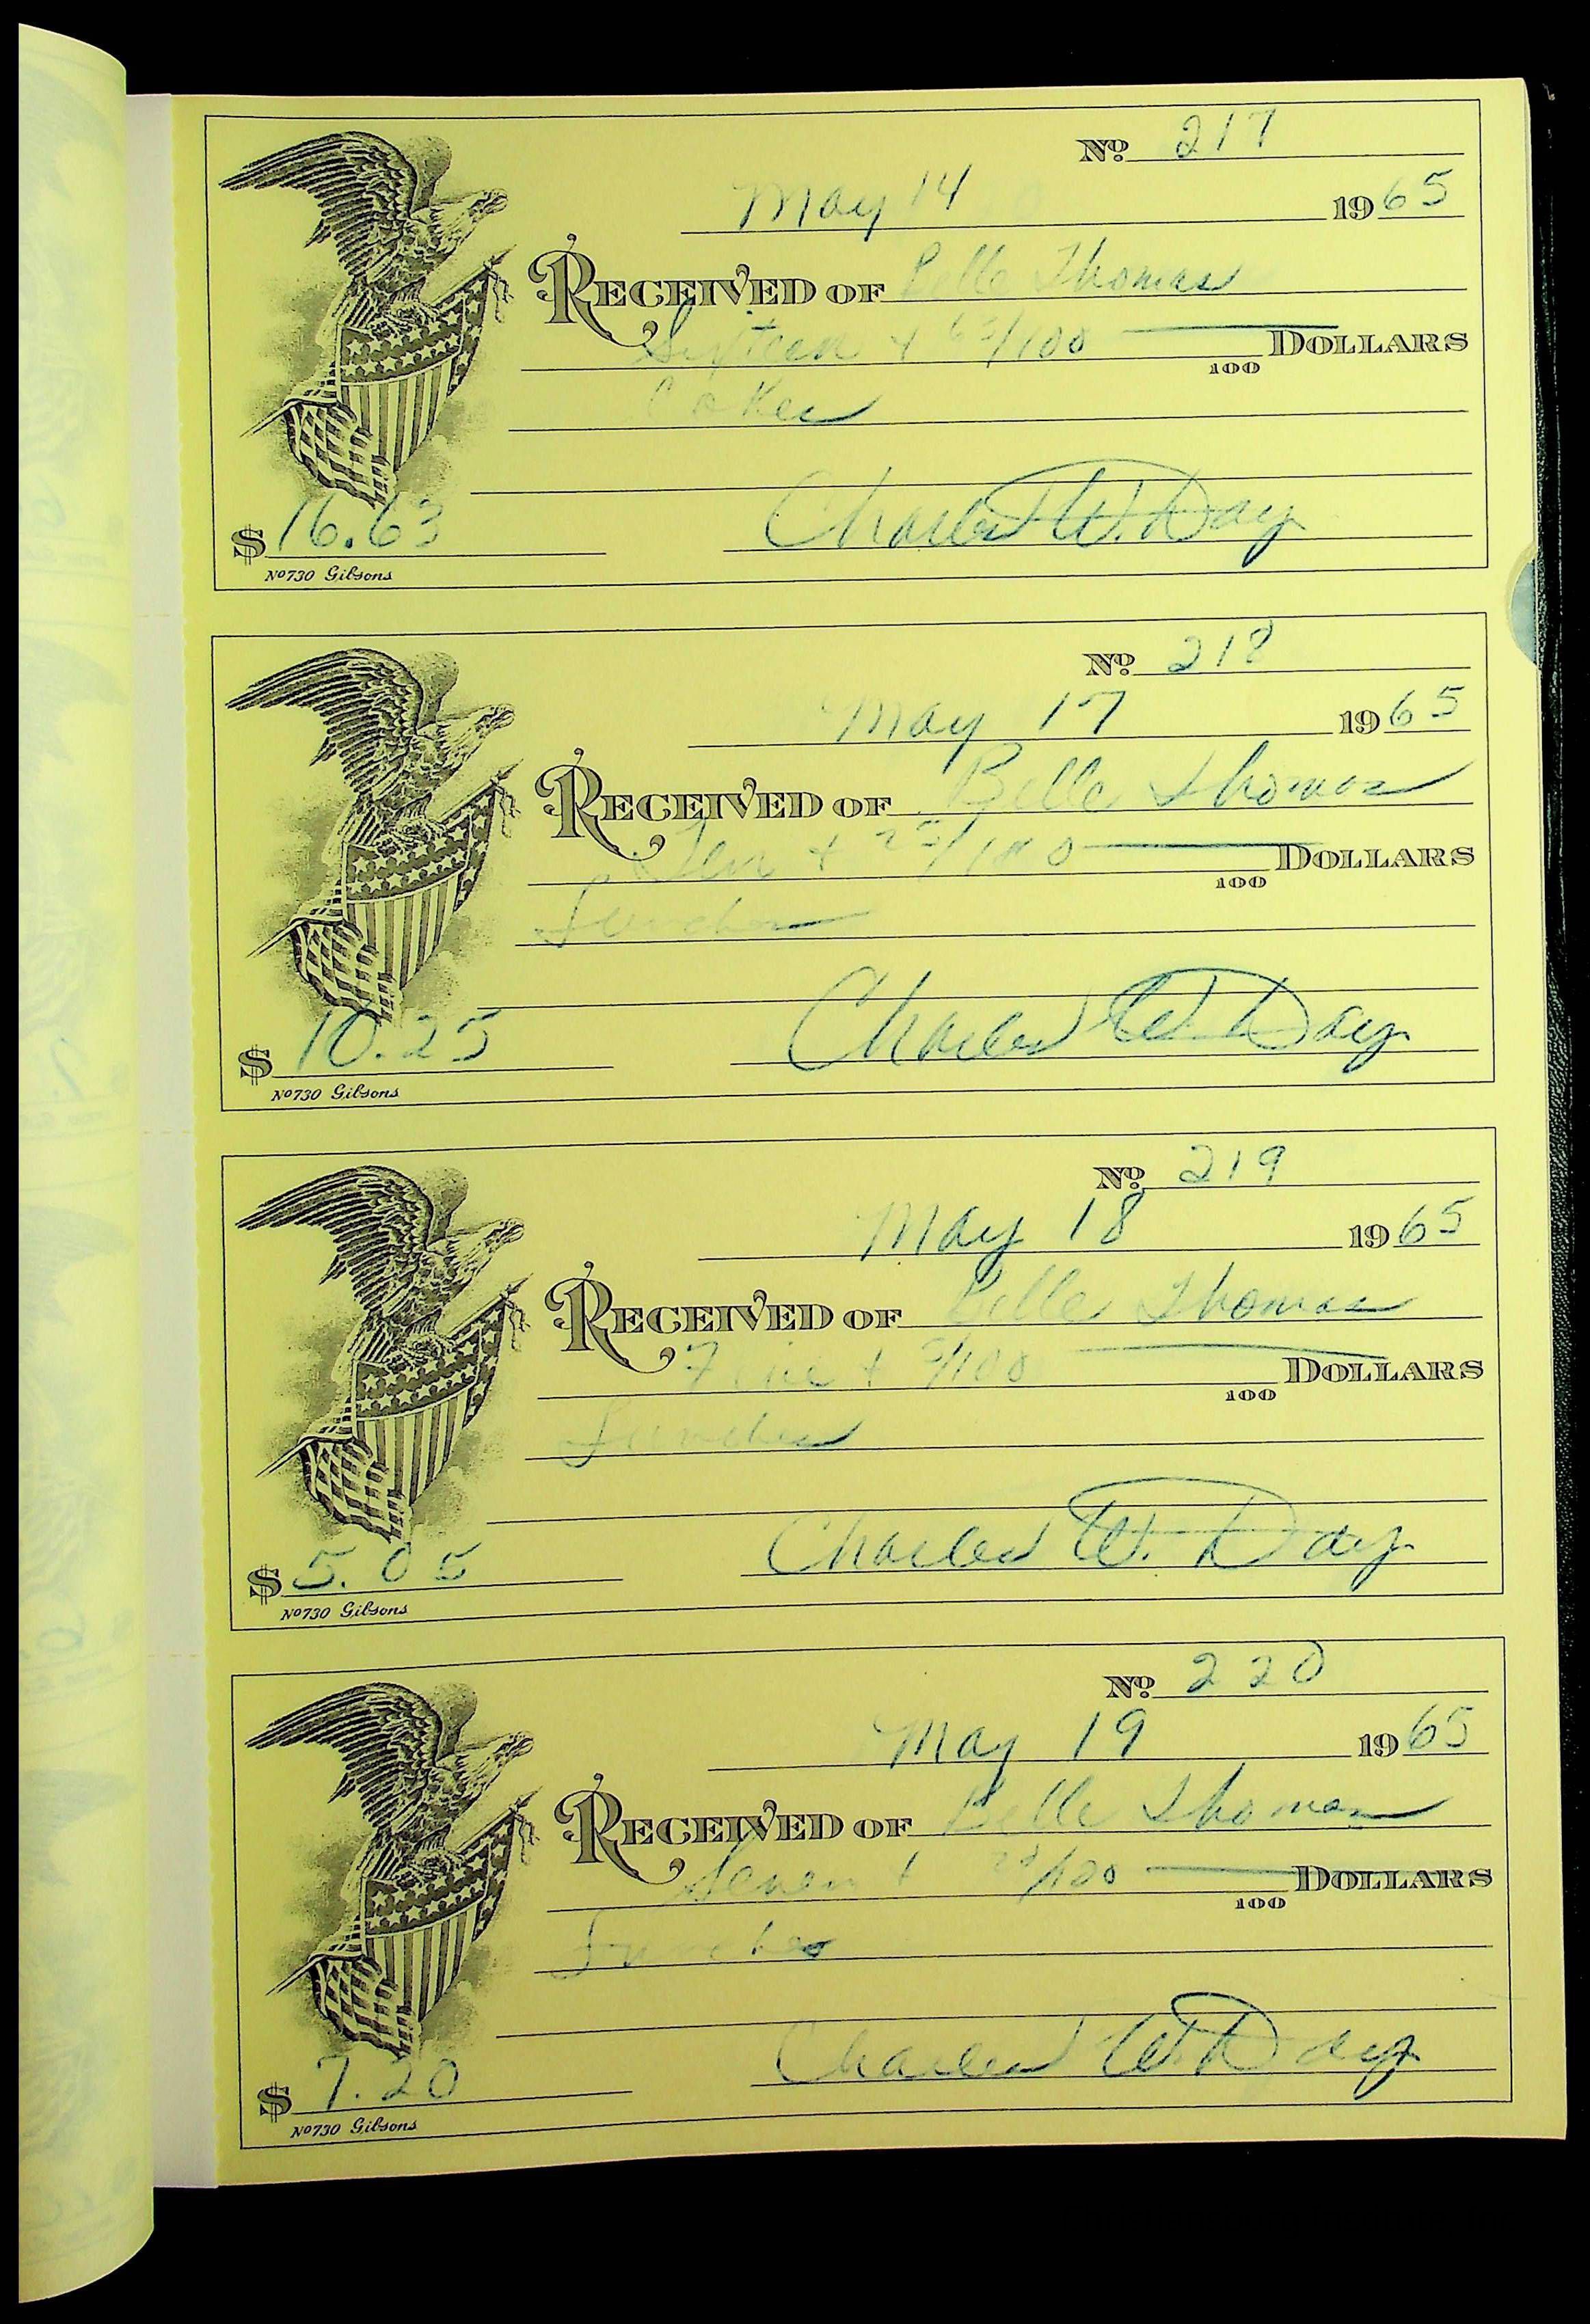 Nº 217
May 14 1965
RECEIVED OF Belle Thomas
Sixteen + 63/100 DOLLARS
100
Cokes
Charles W. Day
$ 16.63
Nº 730 Gibsons
Nº 218
May 17 1965
RECEIVED OF Belle Thomas
Ten + 25/100 DOLLARS
100
Lunches
Charles W. Day
$ 10.25
Nº 730 Gibsons
Nº 219
May 18 1965
RECEIVED OF Belle Thomas
Five + 5/100 DOLLARS
100
Lunches
Charles W. Day
$ 5.05
Nº 730 Gibsons
Nº 220
May 19 1965
RECEIVED OF Belle Thomas
Seven + 20/100 DOLLARS
100
Lunches
Charles W. Day
$ 7.20
Nº 730 Gibsons